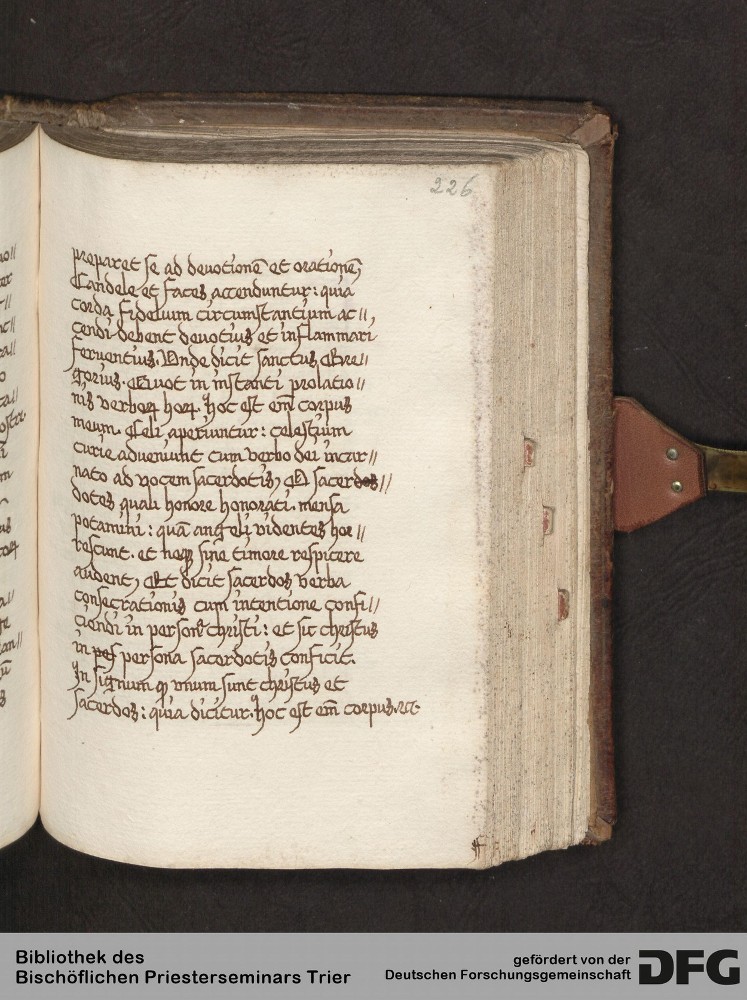 226
preparet se ad deuotionē et orationē,
Candele et faces accenduntur: quia
corda fidelium circumstantium ac//
cendi debent deuotius et inflammari
feruentius. Vnde dicit sanctus Gre//
gorius. Quot in instanti prolatio//
nis verboꝝ hoꝝ. hoc est em̄ corpus
meum. Celi aperiuntur: celestium
curie adueniunt cum verbo dei incar//
nato ad vocem sacerdotis, O sacerdos//
dotes quali honore honorati. mensa
potamini: quā angeli videntes hor//
rescunt. et neqꝫ sine timore respicere
audent, Et dicit sacerdos verba
consecrationis cum intentione confi//
ciendi in person̄ christi: et sic christus
in pers persona sacerdotis conficit.
In signum ꝙ vnum sunt christus et
sacerdos: quia dicitur. hoc est em̄ corpus. ꝛct
Bibliothek des
Bischöflichen Priesterseminars Trier
gefördert von der
Deutschen Forschungsgemeinschaft
DFG